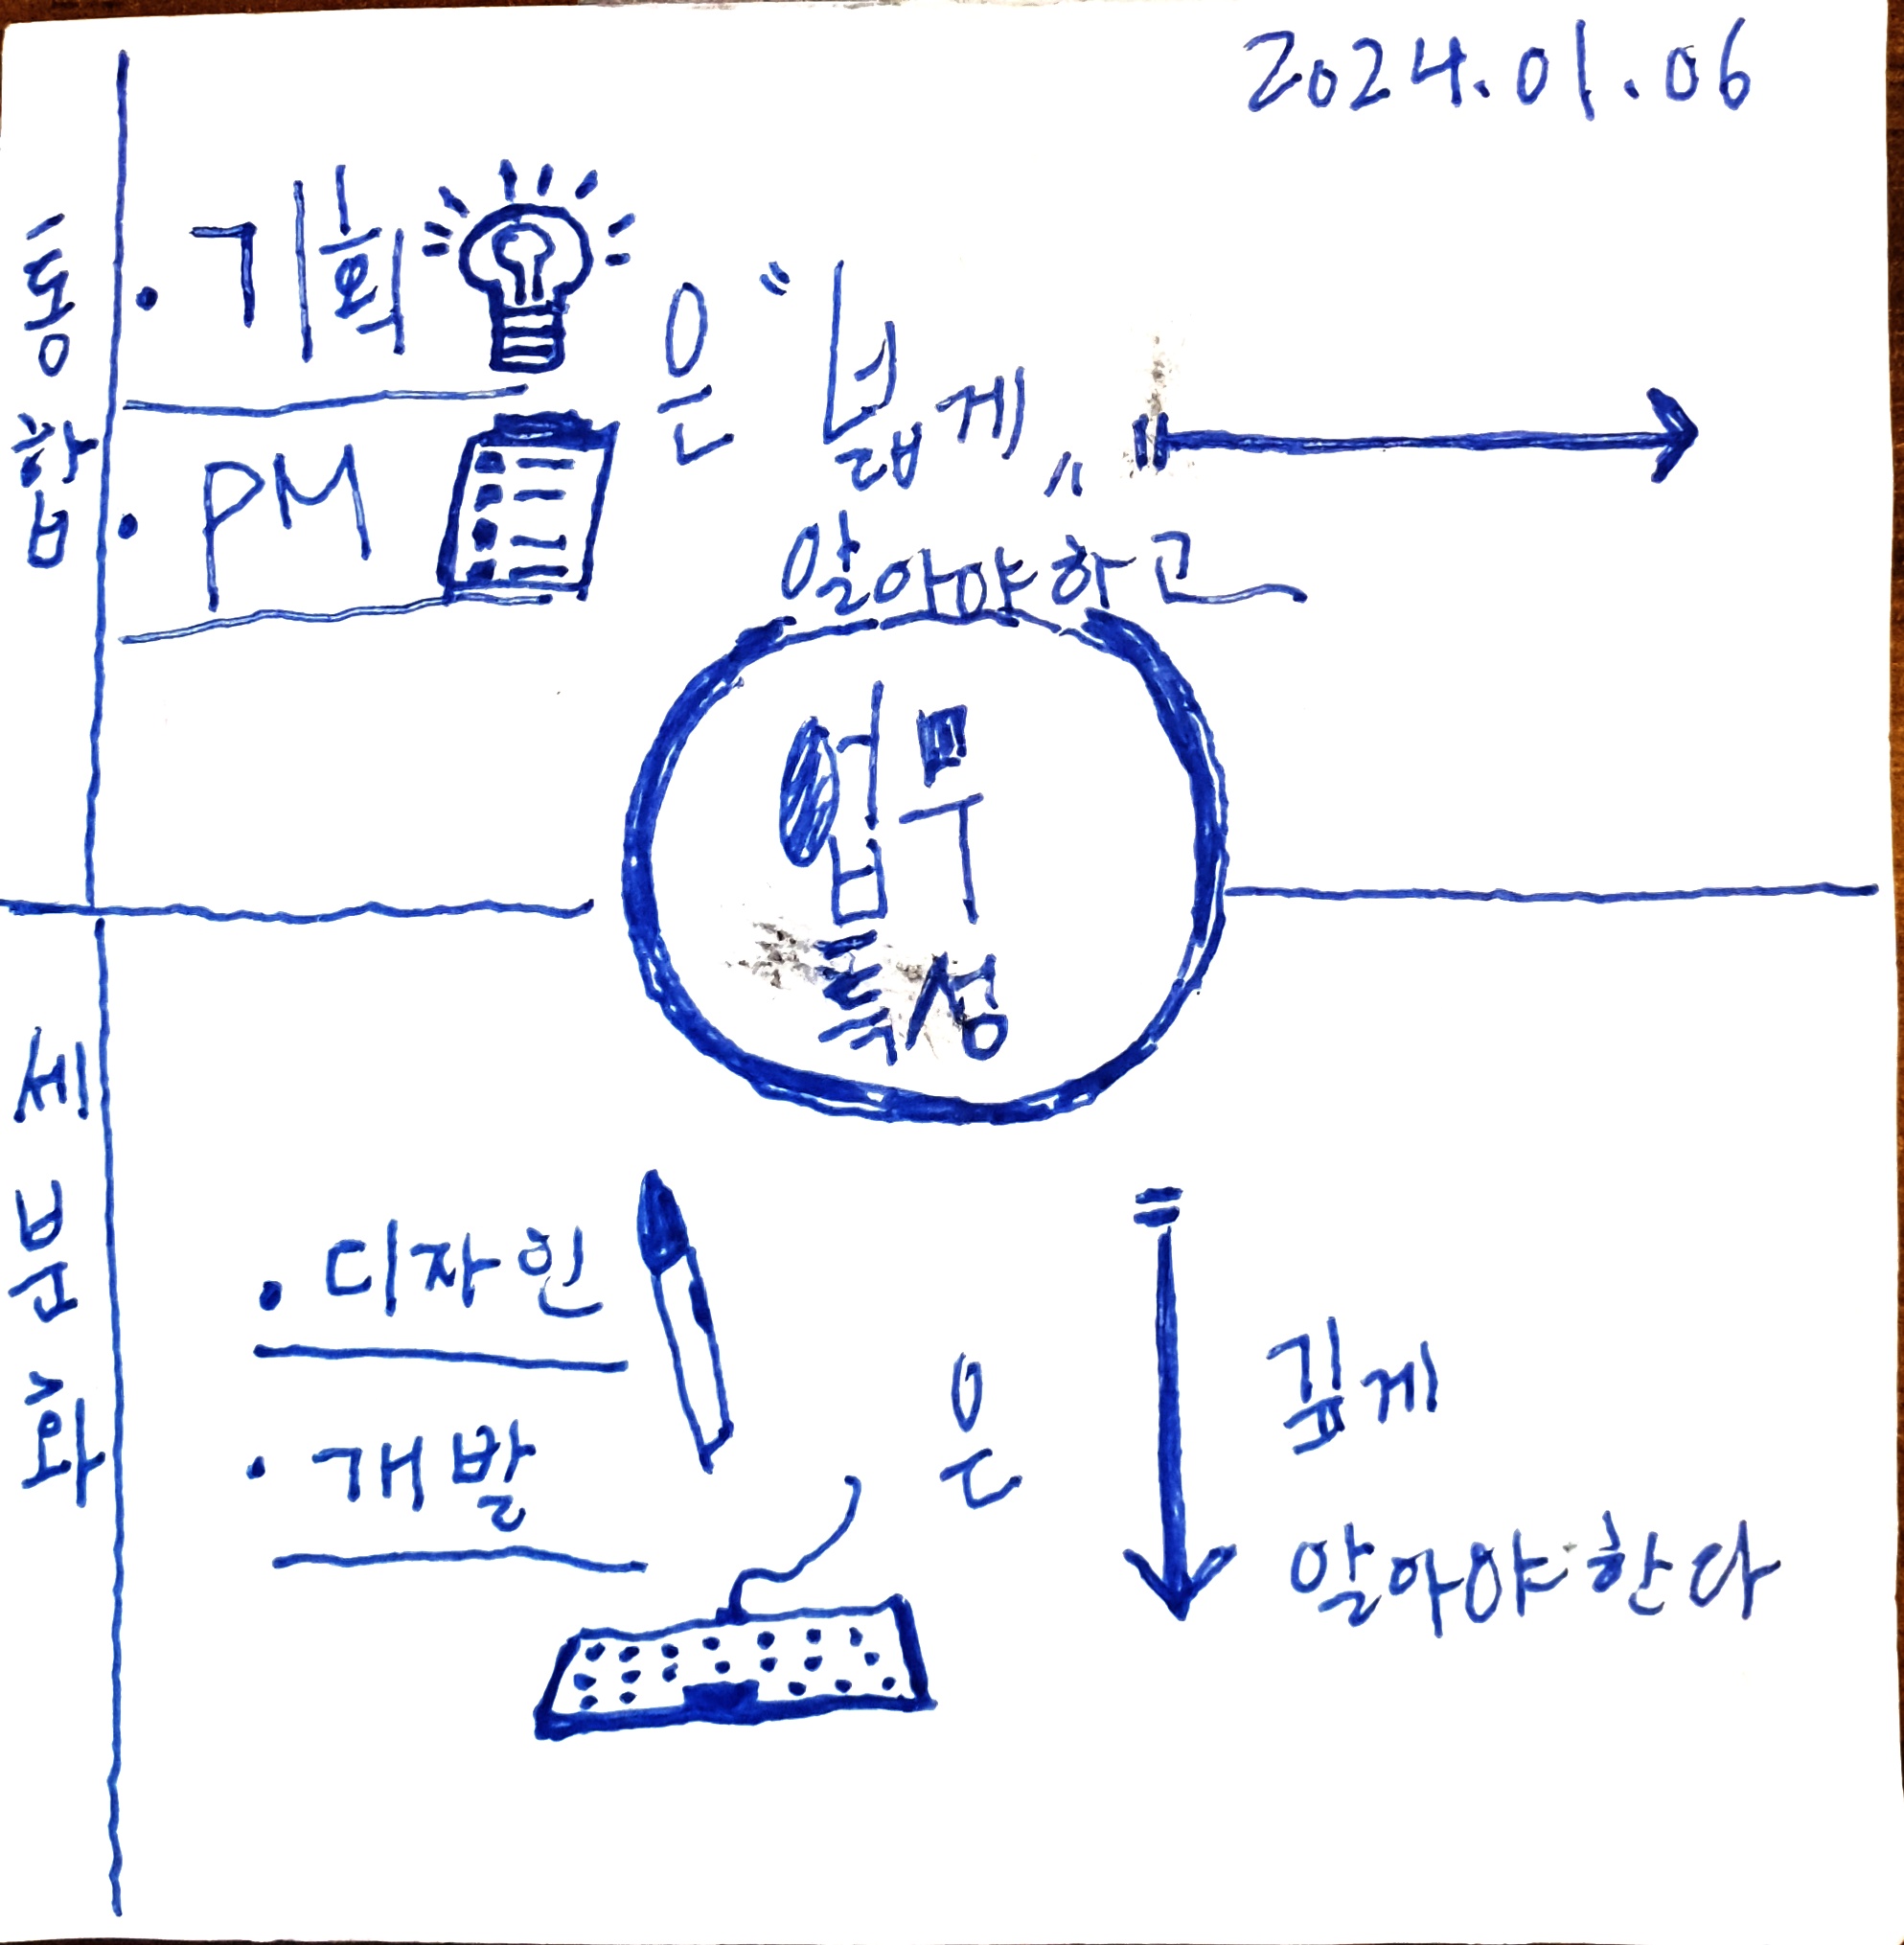 2024.01.06
통합
· 기획 은 "넓게"
· PM
알아야하고
업무
특성
세분화
· 디자인
· 개발 은 깊게
알아야 한다